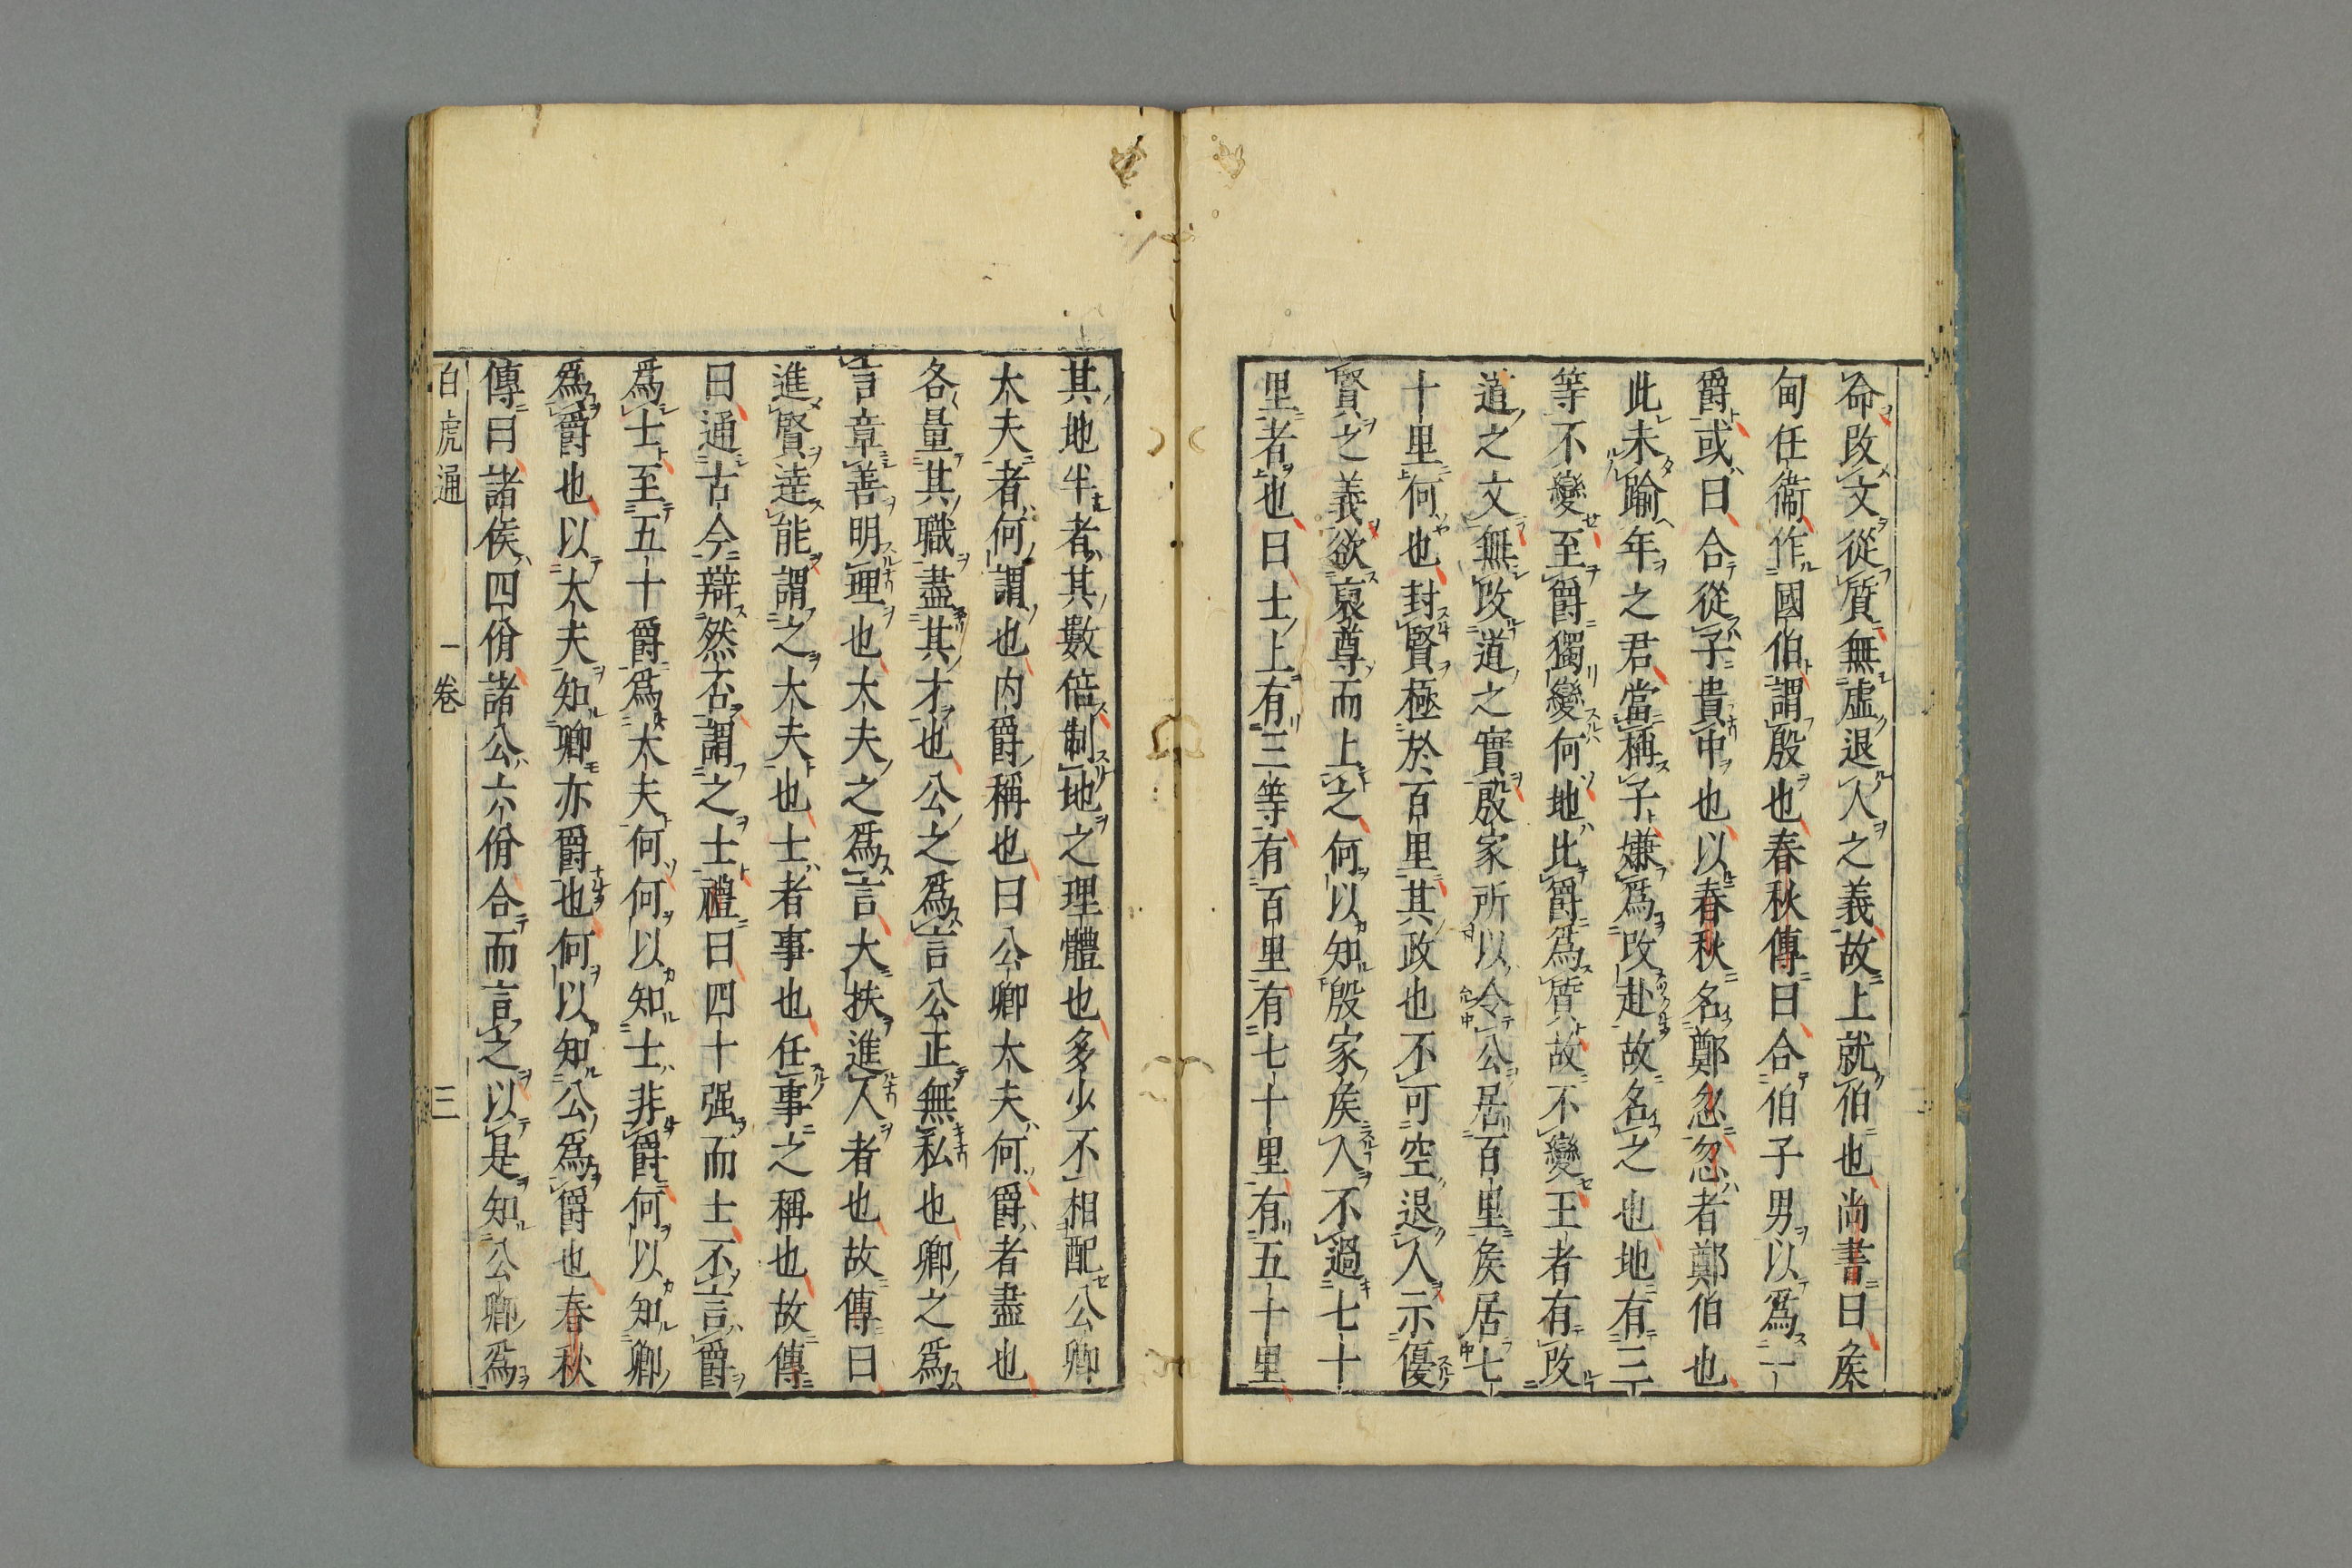 命改文從質無虛退人之義故上就伯也尚書曰矦
甸任衞作國伯謂殷也春秋傳曰合伯子男以爲一
爵或曰合從子貴中也以春秋名鄭忽忽者鄭伯也
此未踰年之君當稱子嫌爲改赴故名之也地有三
等不變至爵獨變何地比爵爲質故不變王者有改
道之文無改道之實殷家所以令公居百里矦居七
十里何也封賢極於百里其政也不可空退人示優
賢之義欲裒尊而上之何以知殷家矦人不過七十
里者也曰士上有三等有百里有七十里有五十里
其地半者其數倍制地之理體也多少不相配公卿
大夫者何謂也内爵稱也曰公卿大夫何爵者盡也
各量其職盡其才也公之爲言公正無私也卿之爲
言章善明理也大夫之爲言大扶進人者也故傳曰
進賢達能謂之大夫也士者事也任事之稱也故傳
曰通古今辯然否謂之士禮曰四十强而士不言爵
爲士至五十爵爲大夫何何以知士非爵何以知卿
爲爵也以大夫知卿亦爵也何以知公爲爵也春秋
傳曰諸侯四佾諸公六佾合而言之以是知公卿爲
白虎通 一卷 三